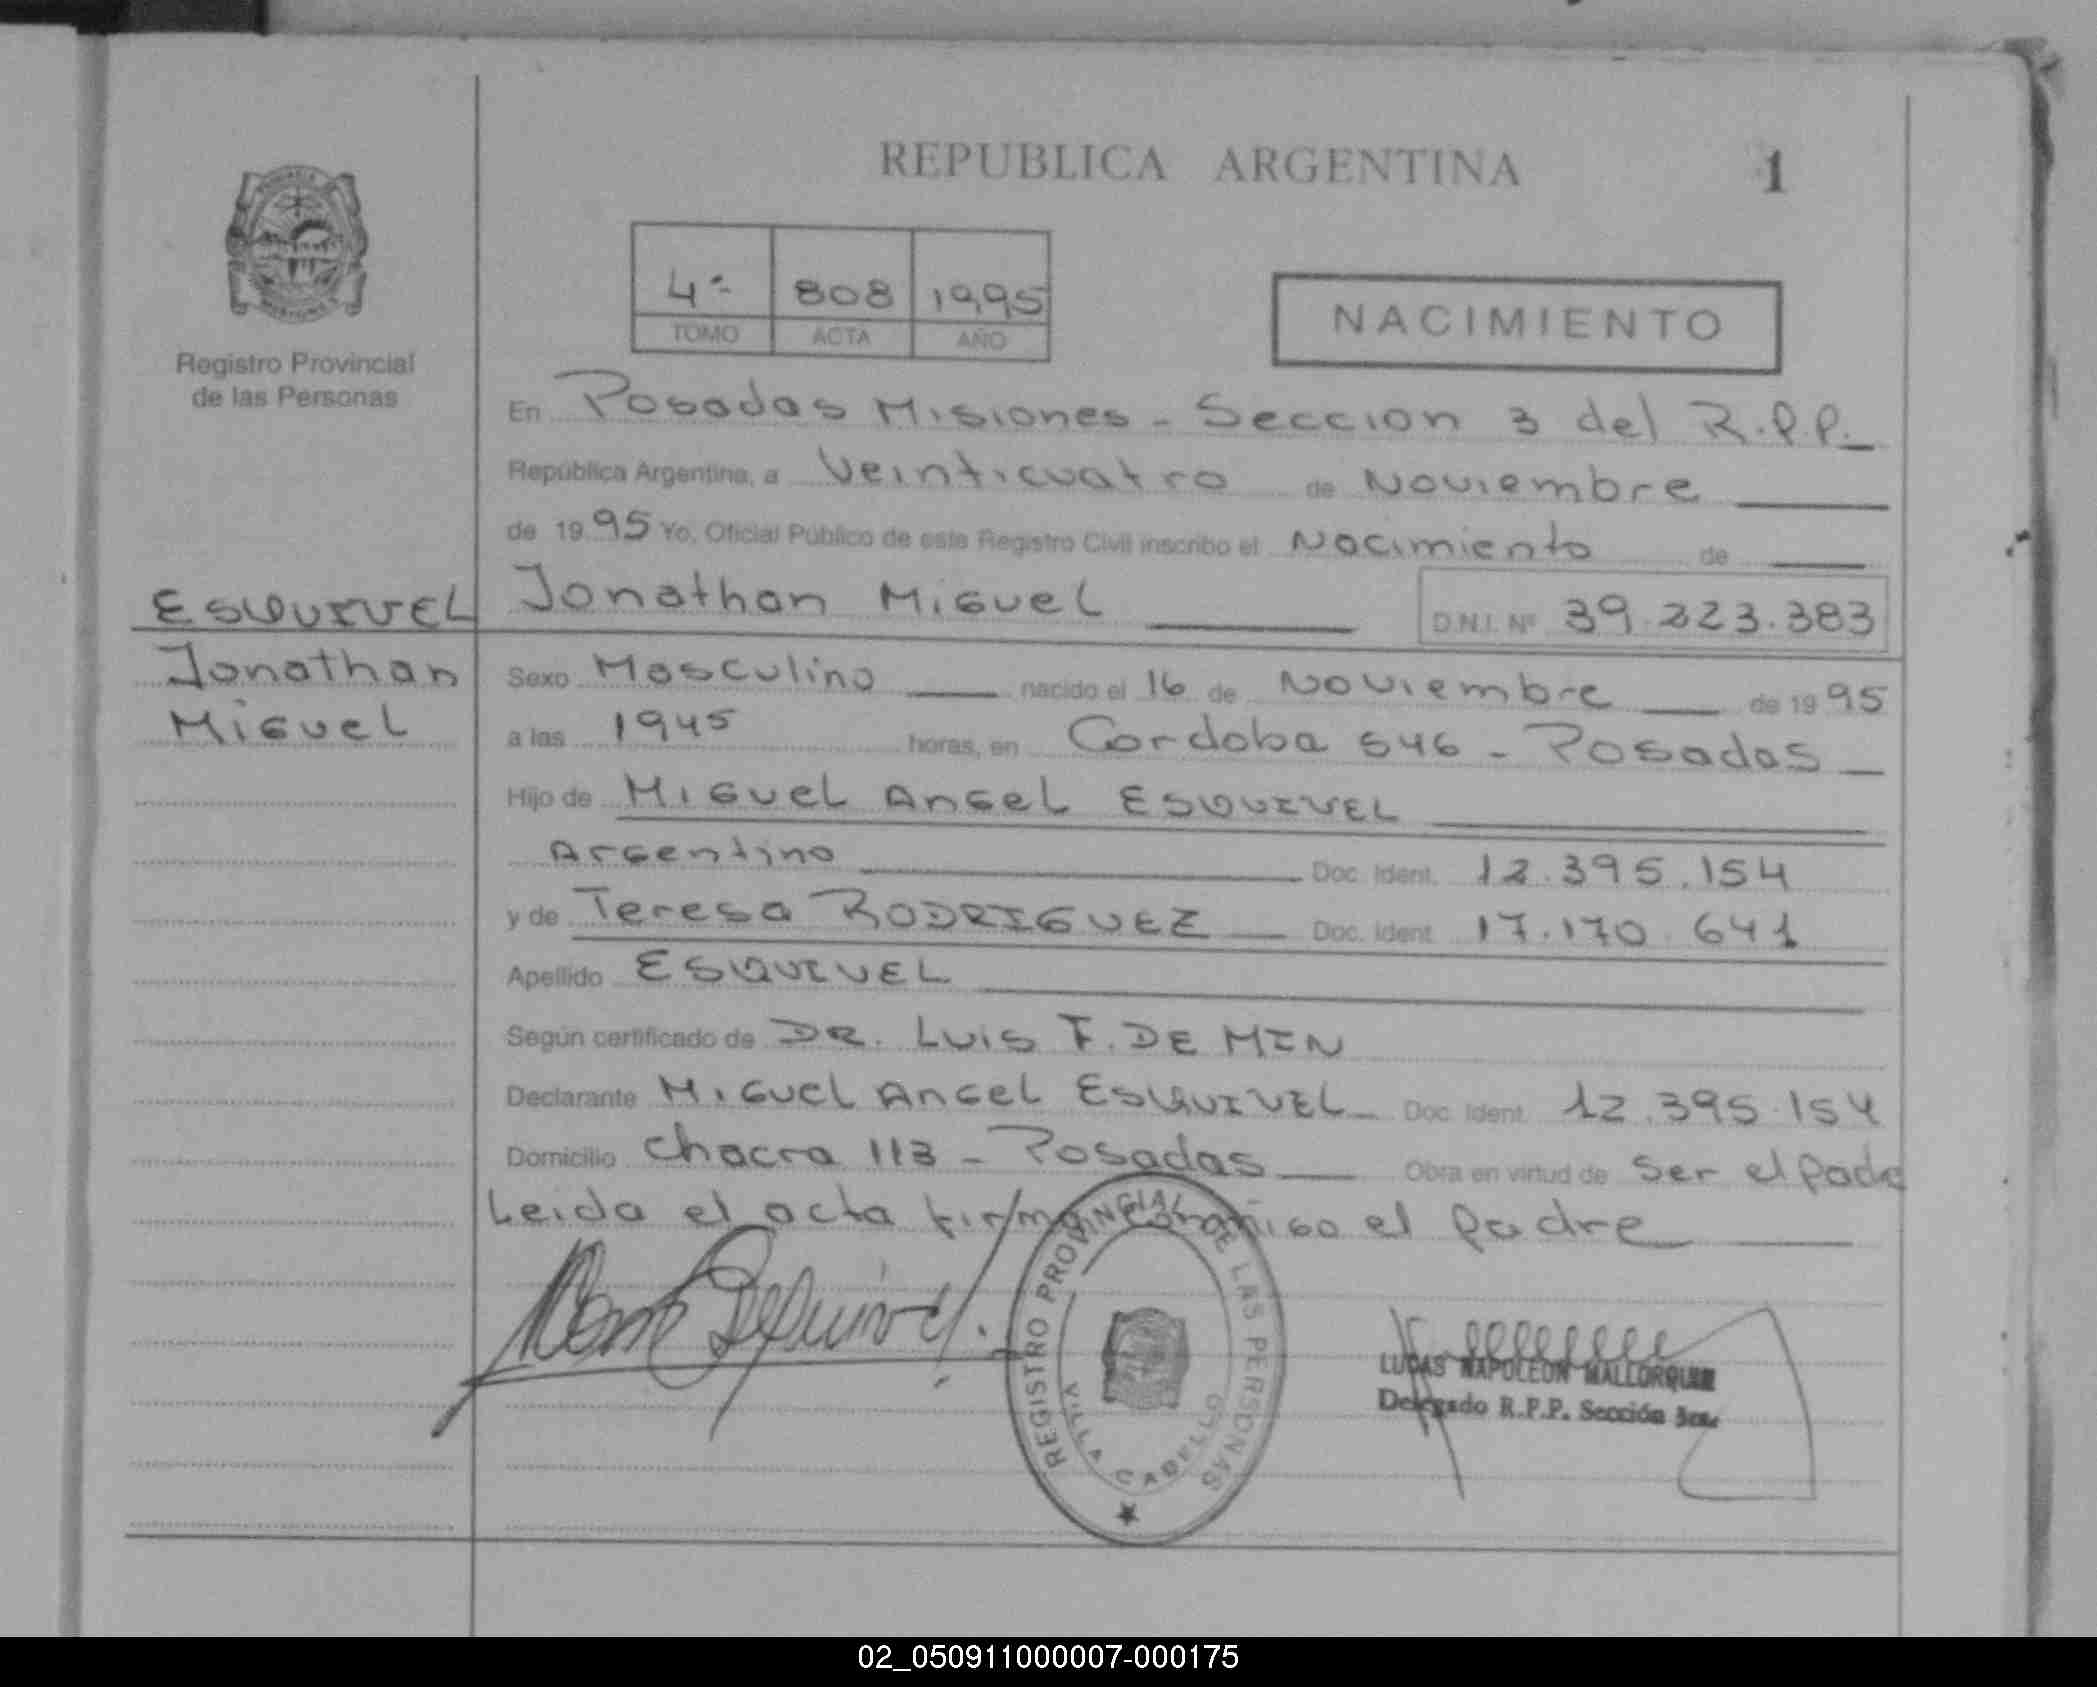 REPUBLICA ARGENTINA 1
Registro Provincial
de las Personas
4º 808 1995
TOMO ACTA AÑO
NACIMIENTO
En Posadas Misiones - Seccion 3 del R.P.P.
República Argentina, a Veinticuatro de Noviembre
de 1995 Yo, Oficial Público de este Registro Civil inscribo el Nacimiento de
Jonathan Miguel D.N.I. Nº 39.223.383
ESQUIVEL
Jonathan
Miguel
Sexo Masculino nacido el 16 de Noviembre de 1995
a las 1945 horas, en Cordoba 546 - Posadas
Hijo de Miguel Angel ESQUIVEL
Argentino Doc. Ident. 12.395.154
y de Teresa RODRIGUEZ Doc. Ident. 17.170.641
Apellido ESQUIVEL
Según certificado de DR. Luis F. DE MIN
Declarante Miguel Angel ESQUIVEL Doc. Ident. 12.395.154
Domicilio Chacra 113 - Posadas Obra en virtud de ser el padre
Leida el acta firma conmigo el padre
REGISTRO PROVINCIAL DE LAS PERSONAS
VILLA CABELLO
LUCAS NAPOLEON MALLORQUIN
Delegado R.P.P. Sección 3ra.
02_050911000007-000175